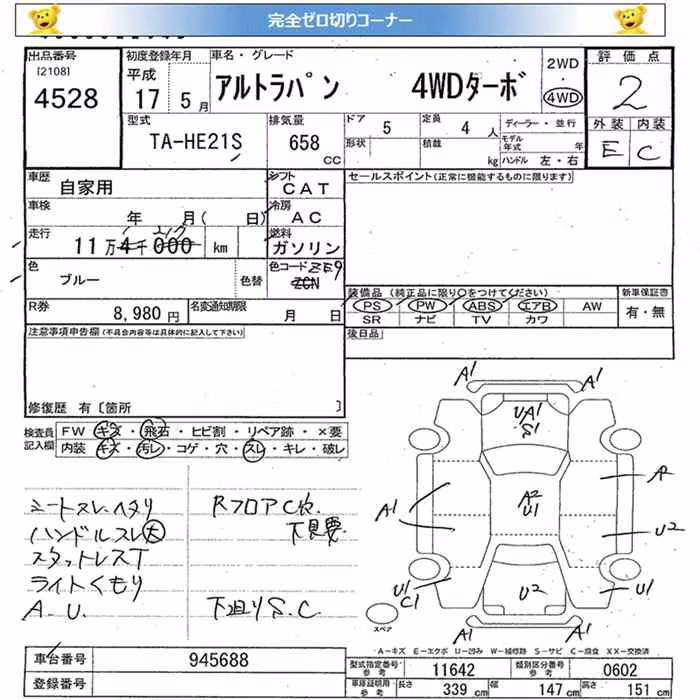 完全ゼロ切りコーナー
出品番号 初度登録年月 車名・グレード 2WD 評価点
[2108] 平成 ・
4528 17年 5月 アルトラパン 4WDターボ 4WD 2
型式 排気量 ドア 5 定員 4人 ディーラー・並行 外装 内装
TA-HE21S 658 CC 形状 積載 kg モデル年式 年 E C
ハンドル 左・右
車歴 自家用 シフト CAT セールスポイント(正常に機能するものに限ります)
車検 年 月( 日) 冷房 AC
走行 11万4千000 km 燃料 ガソリン
色 ブルー 色替 色コード ZE9
ZCN
装備品(純正品に限り○をつけてください) 新車保証書
R券 8,980円 名変通知期限 月 日 PS PW ABS エアB AW 有・無
SR ナビ TV カワ
注意事項申告欄(不具合内容等は具体的に記入して下さい) 後日品
修復歴 有〔箇所 〕
検査員記入欄 FW キズ・飛石・ヒビ割・リペア跡・×要
内装 キズ・汚レ・コゲ・穴・スレ・キレ・破レ
シートスレ、ヘタリ RフロアC穴、
ハンドルスレ大 下見要
スタットレスT
ライトくもり
A.U. 下廻りS.C
A1 A1
UA1
S1
A2
U1
A1
A2
U2
U1
C1
U2
U1
A1 A1
スペア
A-キズ E-エクボ U-凹み W-補修跡 S-サビ C-腐食 XX-交換済
車台番号 945688 型式指定番号 参考 11642 類別区分番号 参考 0602
登録番号 車庫証明用 参考 長さ 339 cm 幅 147 cm 高さ 151 cm